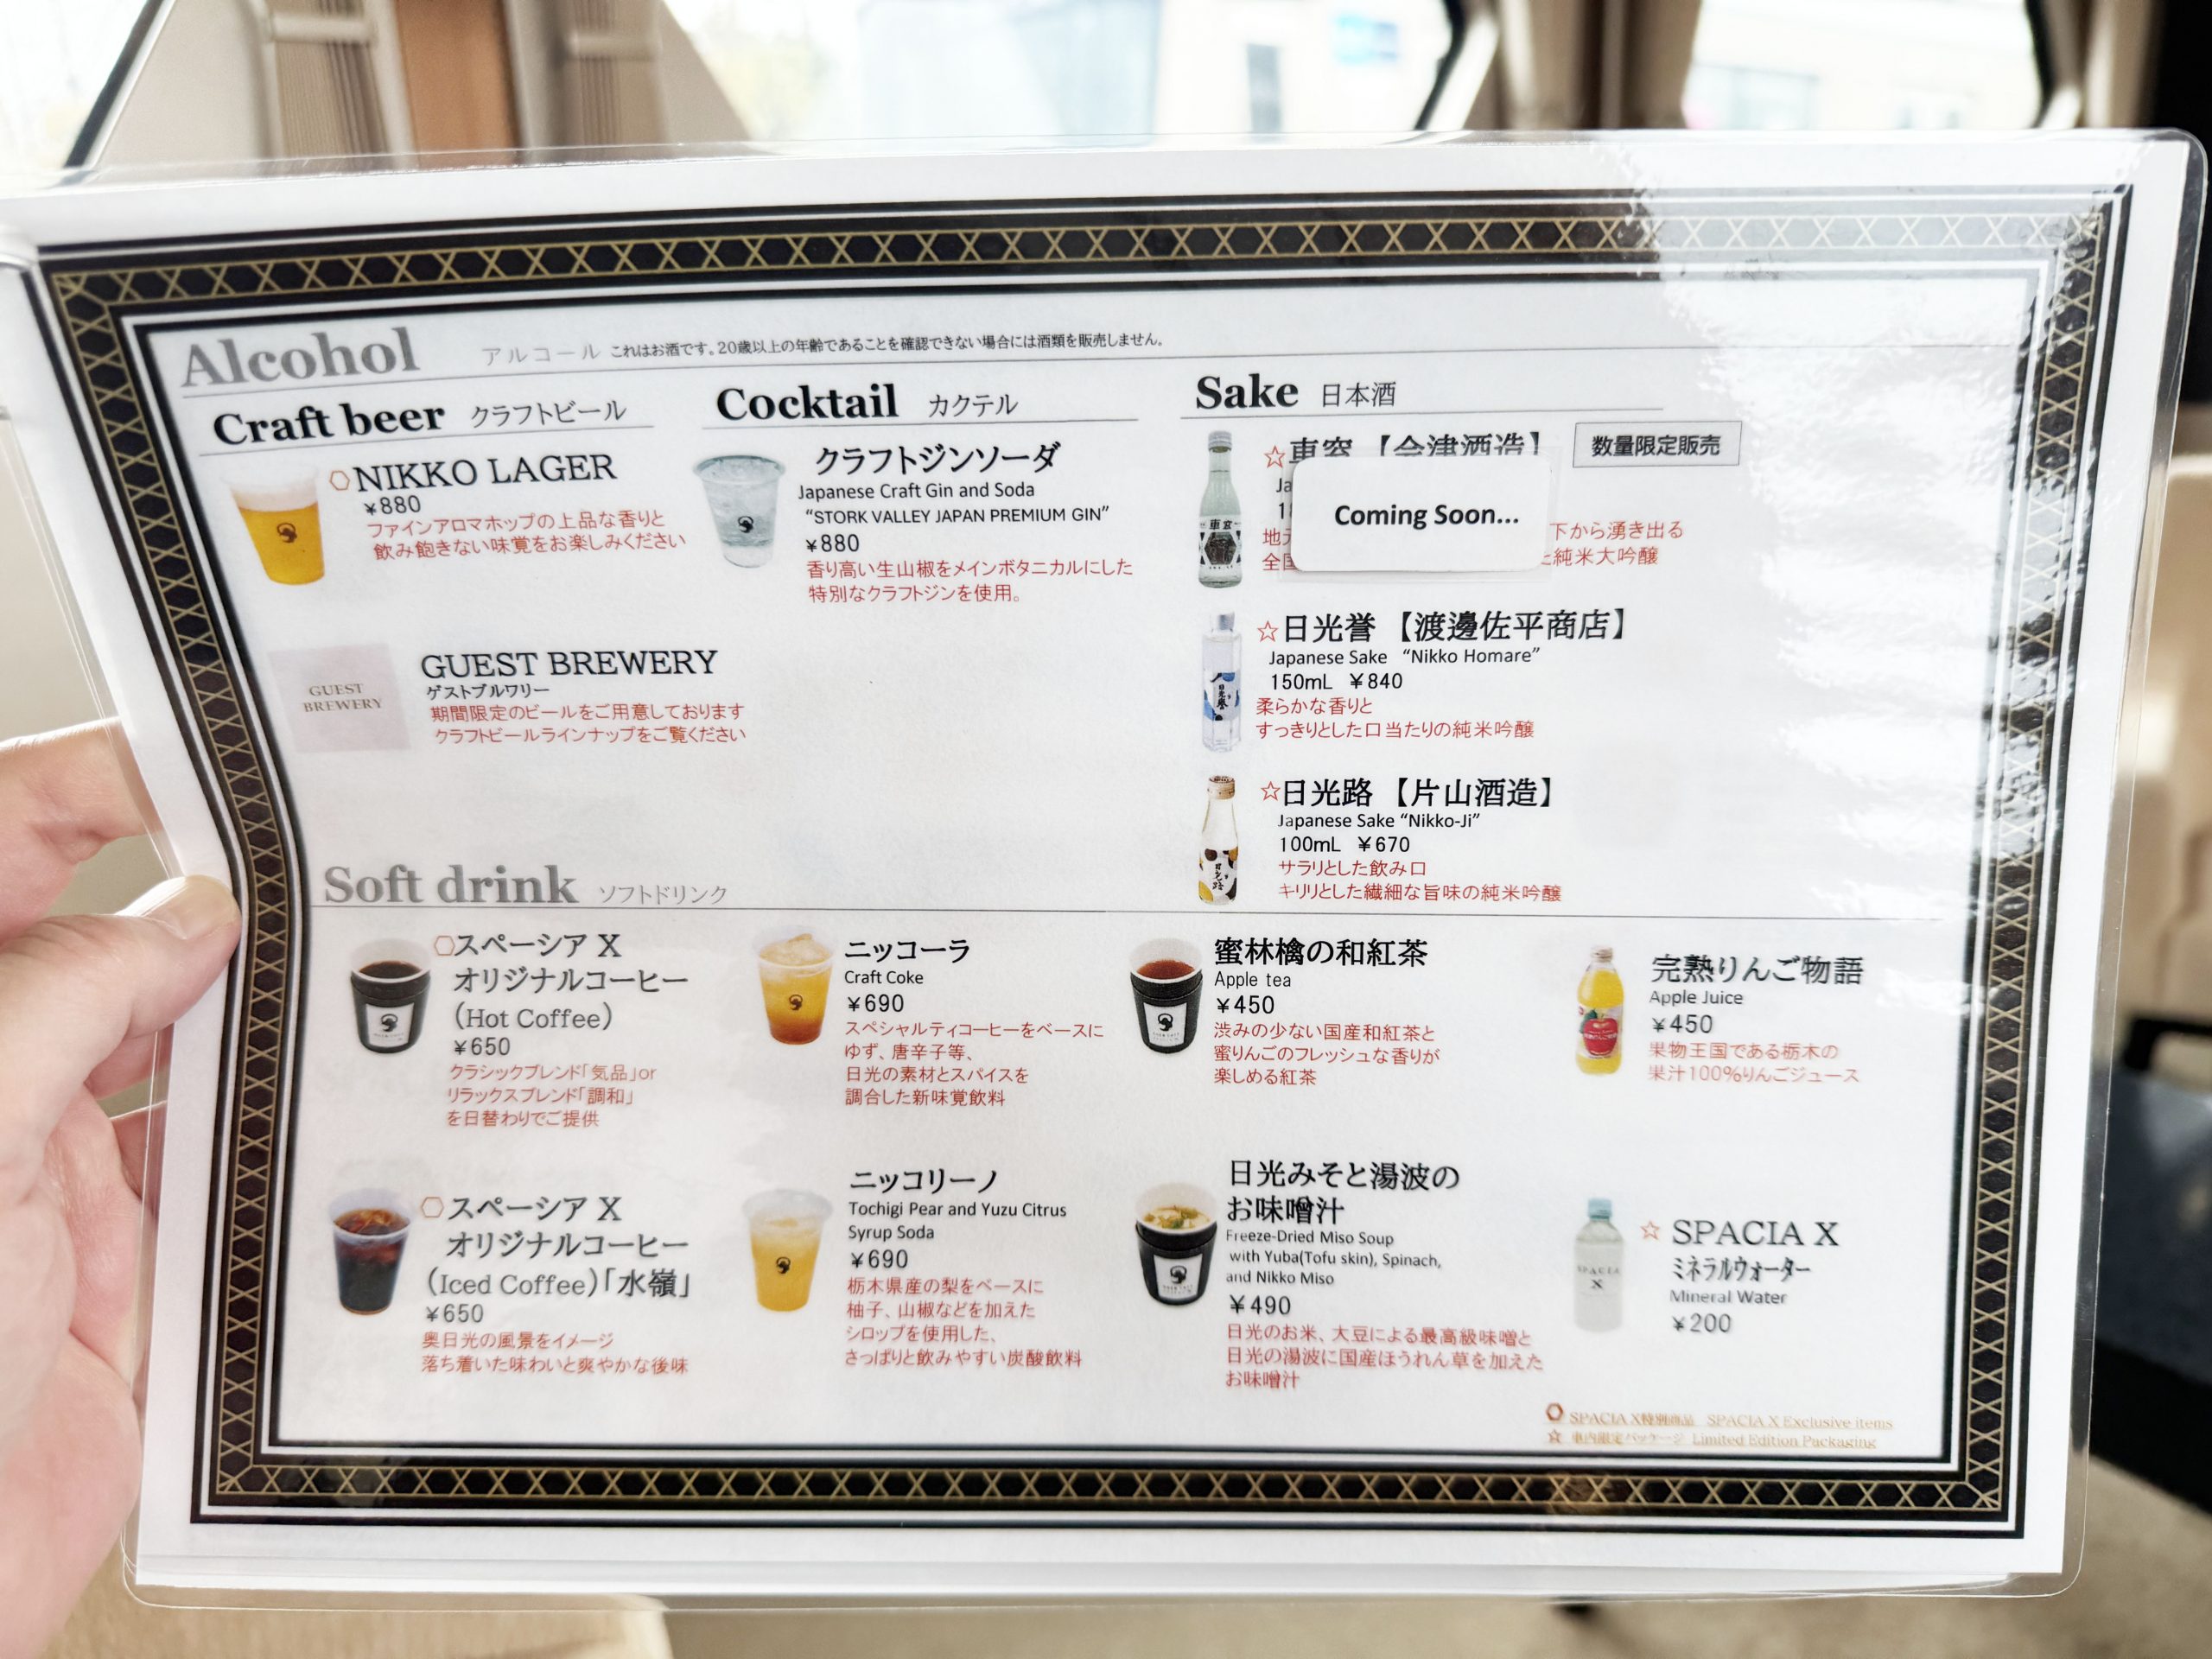 Alcohol アルコール これはお酒です。20歳以上の年齢であることを確認できない場合には酒類を販売しません。
Craft beer クラフトビール
NIKKO LAGER
¥880
ファインアロマホップの上品な香りと
飲み飽きない味覚をお楽しみください
GUEST BREWERY
GUEST BREWERY
ゲストブルワリー
期間限定のビールをご用意しております
クラフトビールラインナップをご覧ください
Cocktail カクテル
クラフトジンソーダ
Japanese Craft Gin and Soda
"STORK VALLEY JAPAN PREMIUM GIN"
¥880
香り高い生山椒をメインボタニカルにした
特別なクラフトジンを使用。
Sake 日本酒
☆車窓 【会津酒造】 数量限定販売
Ja
Coming Soon...
下から湧き出る
純米大吟醸
☆日光誉 【渡邊佐平商店】
Japanese Sake "Nikko Homare"
150mL ¥840
柔らかな香りと
すっきりとした口当たりの純米吟醸
☆日光路 【片山酒造】
Japanese Sake "Nikko-Ji"
100mL ¥670
サラリとした飲み口
キリリとした繊細な旨味の純米吟醸
Soft drink ソフトドリンク
スペーシア X
オリジナルコーヒー
(Hot Coffee)
¥650
クラシックブレンド「気品」or
リラックスブレンド「調和」
を日替わりでご提供
ニッコーラ
Craft Coke
¥690
スペシャルティコーヒーをベースに
ゆず、唐辛子等、
日光の素材とスパイスを
調合した新味覚飲料
蜜林檎の和紅茶
Apple tea
¥450
渋みの少ない国産和紅茶と
蜜りんごのフレッシュな香りが
楽しめる紅茶
完熟りんご物語
Apple Juice
¥450
果物王国である栃木の
果汁100%りんごジュース
スペーシア X
オリジナルコーヒー
(Iced Coffee)「水嶺」
¥650
奥日光の風景をイメージ
落ち着いた味わいと爽やかな後味
ニッコリーノ
Tochigi Pear and Yuzu Citrus
Syrup Soda
¥690
栃木県産の梨をベースに
柚子、山椒などを加えた
シロップを使用した、
さっぱりと飲みやすい炭酸飲料
日光みそと湯波の
お味噌汁
Freeze-Dried Miso Soup
with Yuba(Tofu skin), Spinach,
and Nikko Miso
¥490
日光のお米、大豆による最高級味噌と
日光の湯波に国産ほうれん草を加えた
お味噌汁
☆ SPACIA X
ミネラルウォーター
Mineral Water
¥200
SPACIA X特別商品 SPACIA X Exclusive items
☆ 車内限定パッケージ Limited Edition Packaging